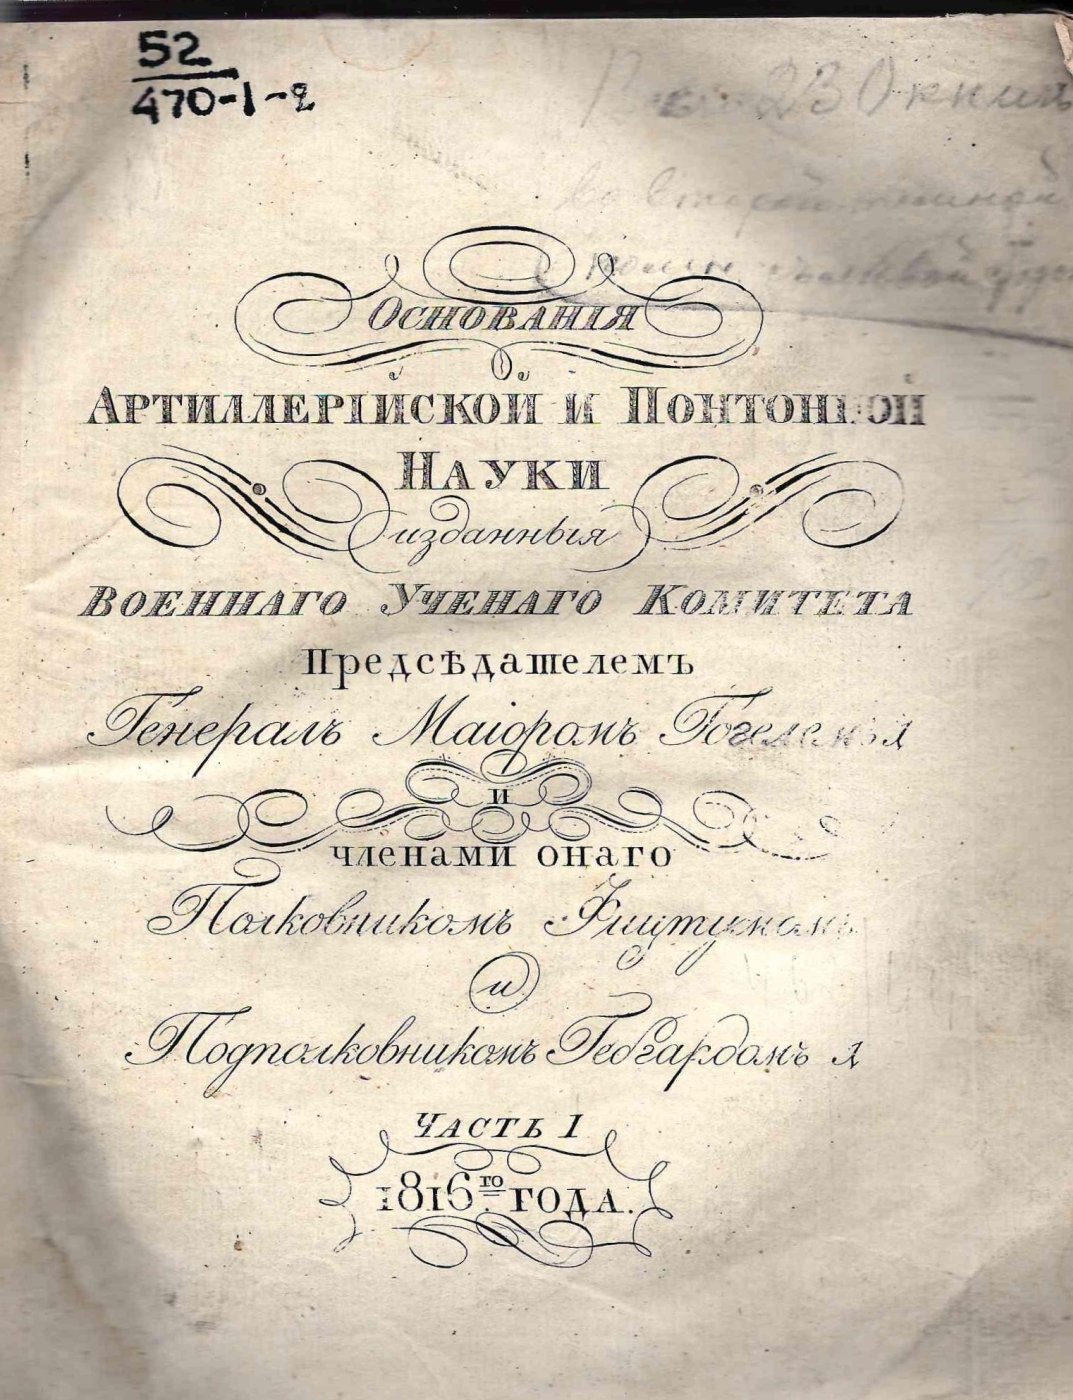 52
470-1-2
23 0 книга
во второй
Основанія
Артиллерійской и Понтонной
Науки
изданныя
Военнаго Ученаго Комитета
Предсѣдателемъ
Генералъ Маіоромъ Гогелемъ 1
и
членами онаго
Полковникомъ Фицтумомъ
и
Подполковникомъ Гебгардомъ 1
Часть I
1816го года.